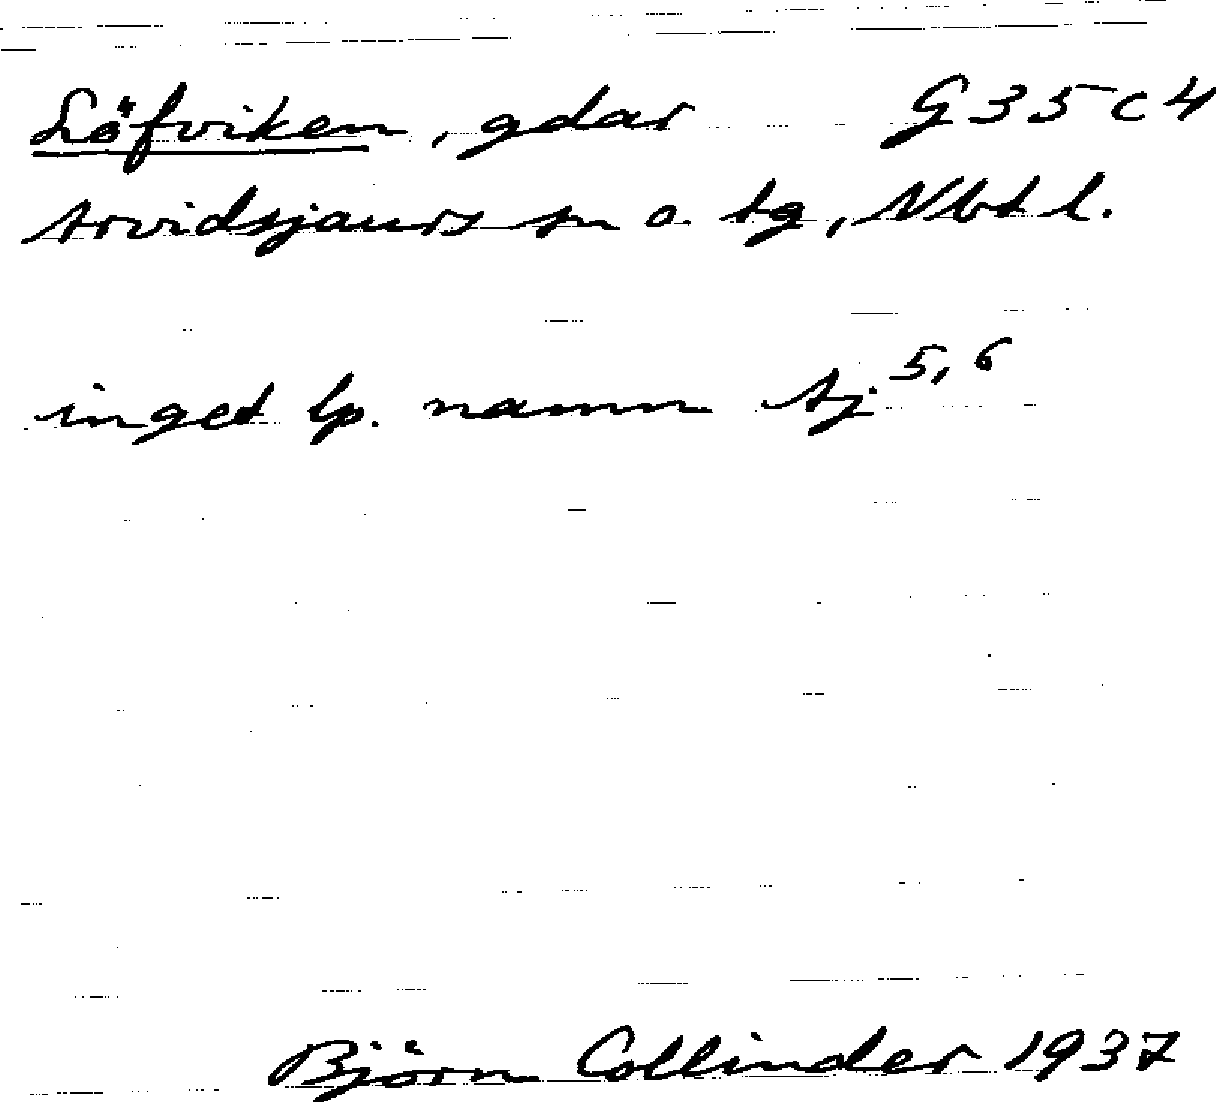 Löfviken, gdar G 35 c 4
Arvidsjaurs sn o. tg, Nbt l.
inget lp. namn Aj. 5, 6
Björn Collinder 1937